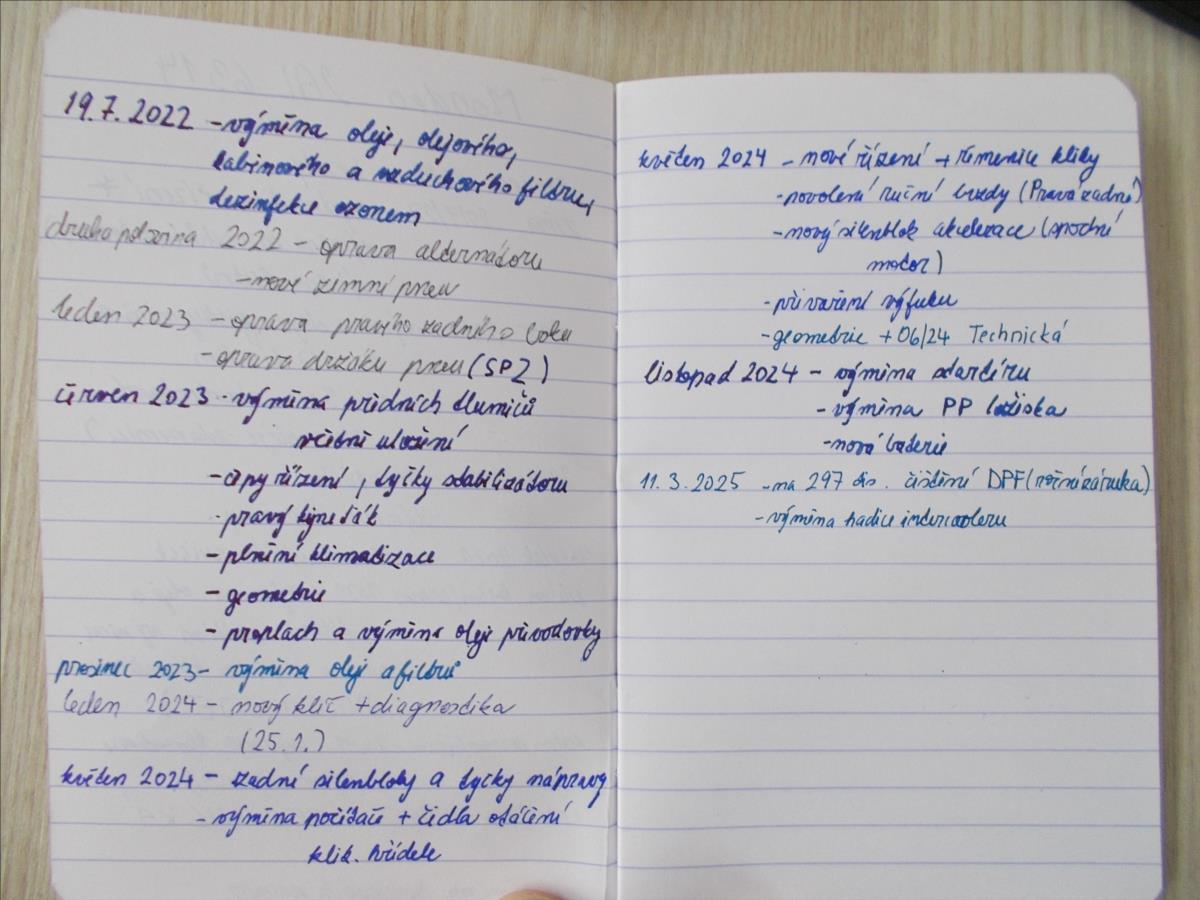 19.7.2022 - výměna oleje, olejového,
kabinového a vzduchového filtru,
dezinfekce ozonem
druhá polovina 2022 - oprava alternátoru
- nové zimní pneu
leden 2023 - oprava pravého zadního boku
- oprava držáku pneu (SPZ)
červen 2023 - výměna předních tlumičů
včetně uložení
- čepy řízení, tyčky stabilizátoru
- pravý kyneďák
- plnění klimatizace
- geometrie
- proplach a výměna oleje převodovky
prosinec 2023 - výměna oleje a filtrů
leden 2024 - nový klíč + diagnostika
(25.1.)
květen 2024 - zadní silenbloky a tyčky nápravy
- výměna počítače + čidla otáčení
klik. hřídele
květen 2024 - nové řízení + řemenice kliky
- povolení ruční brzdy (Pravá zadní)
- nový silenblok akcelerace (spodní
motor)
- přivaření výfuku
- geometrie + 06/24 Technická
listopad 2024 - výměna startéru
- výměna PP ložiska
- nová baterie
11.3.2025 - na 297 tis. čištění DPF (roční záruka)
- výměna hadice intercooleru